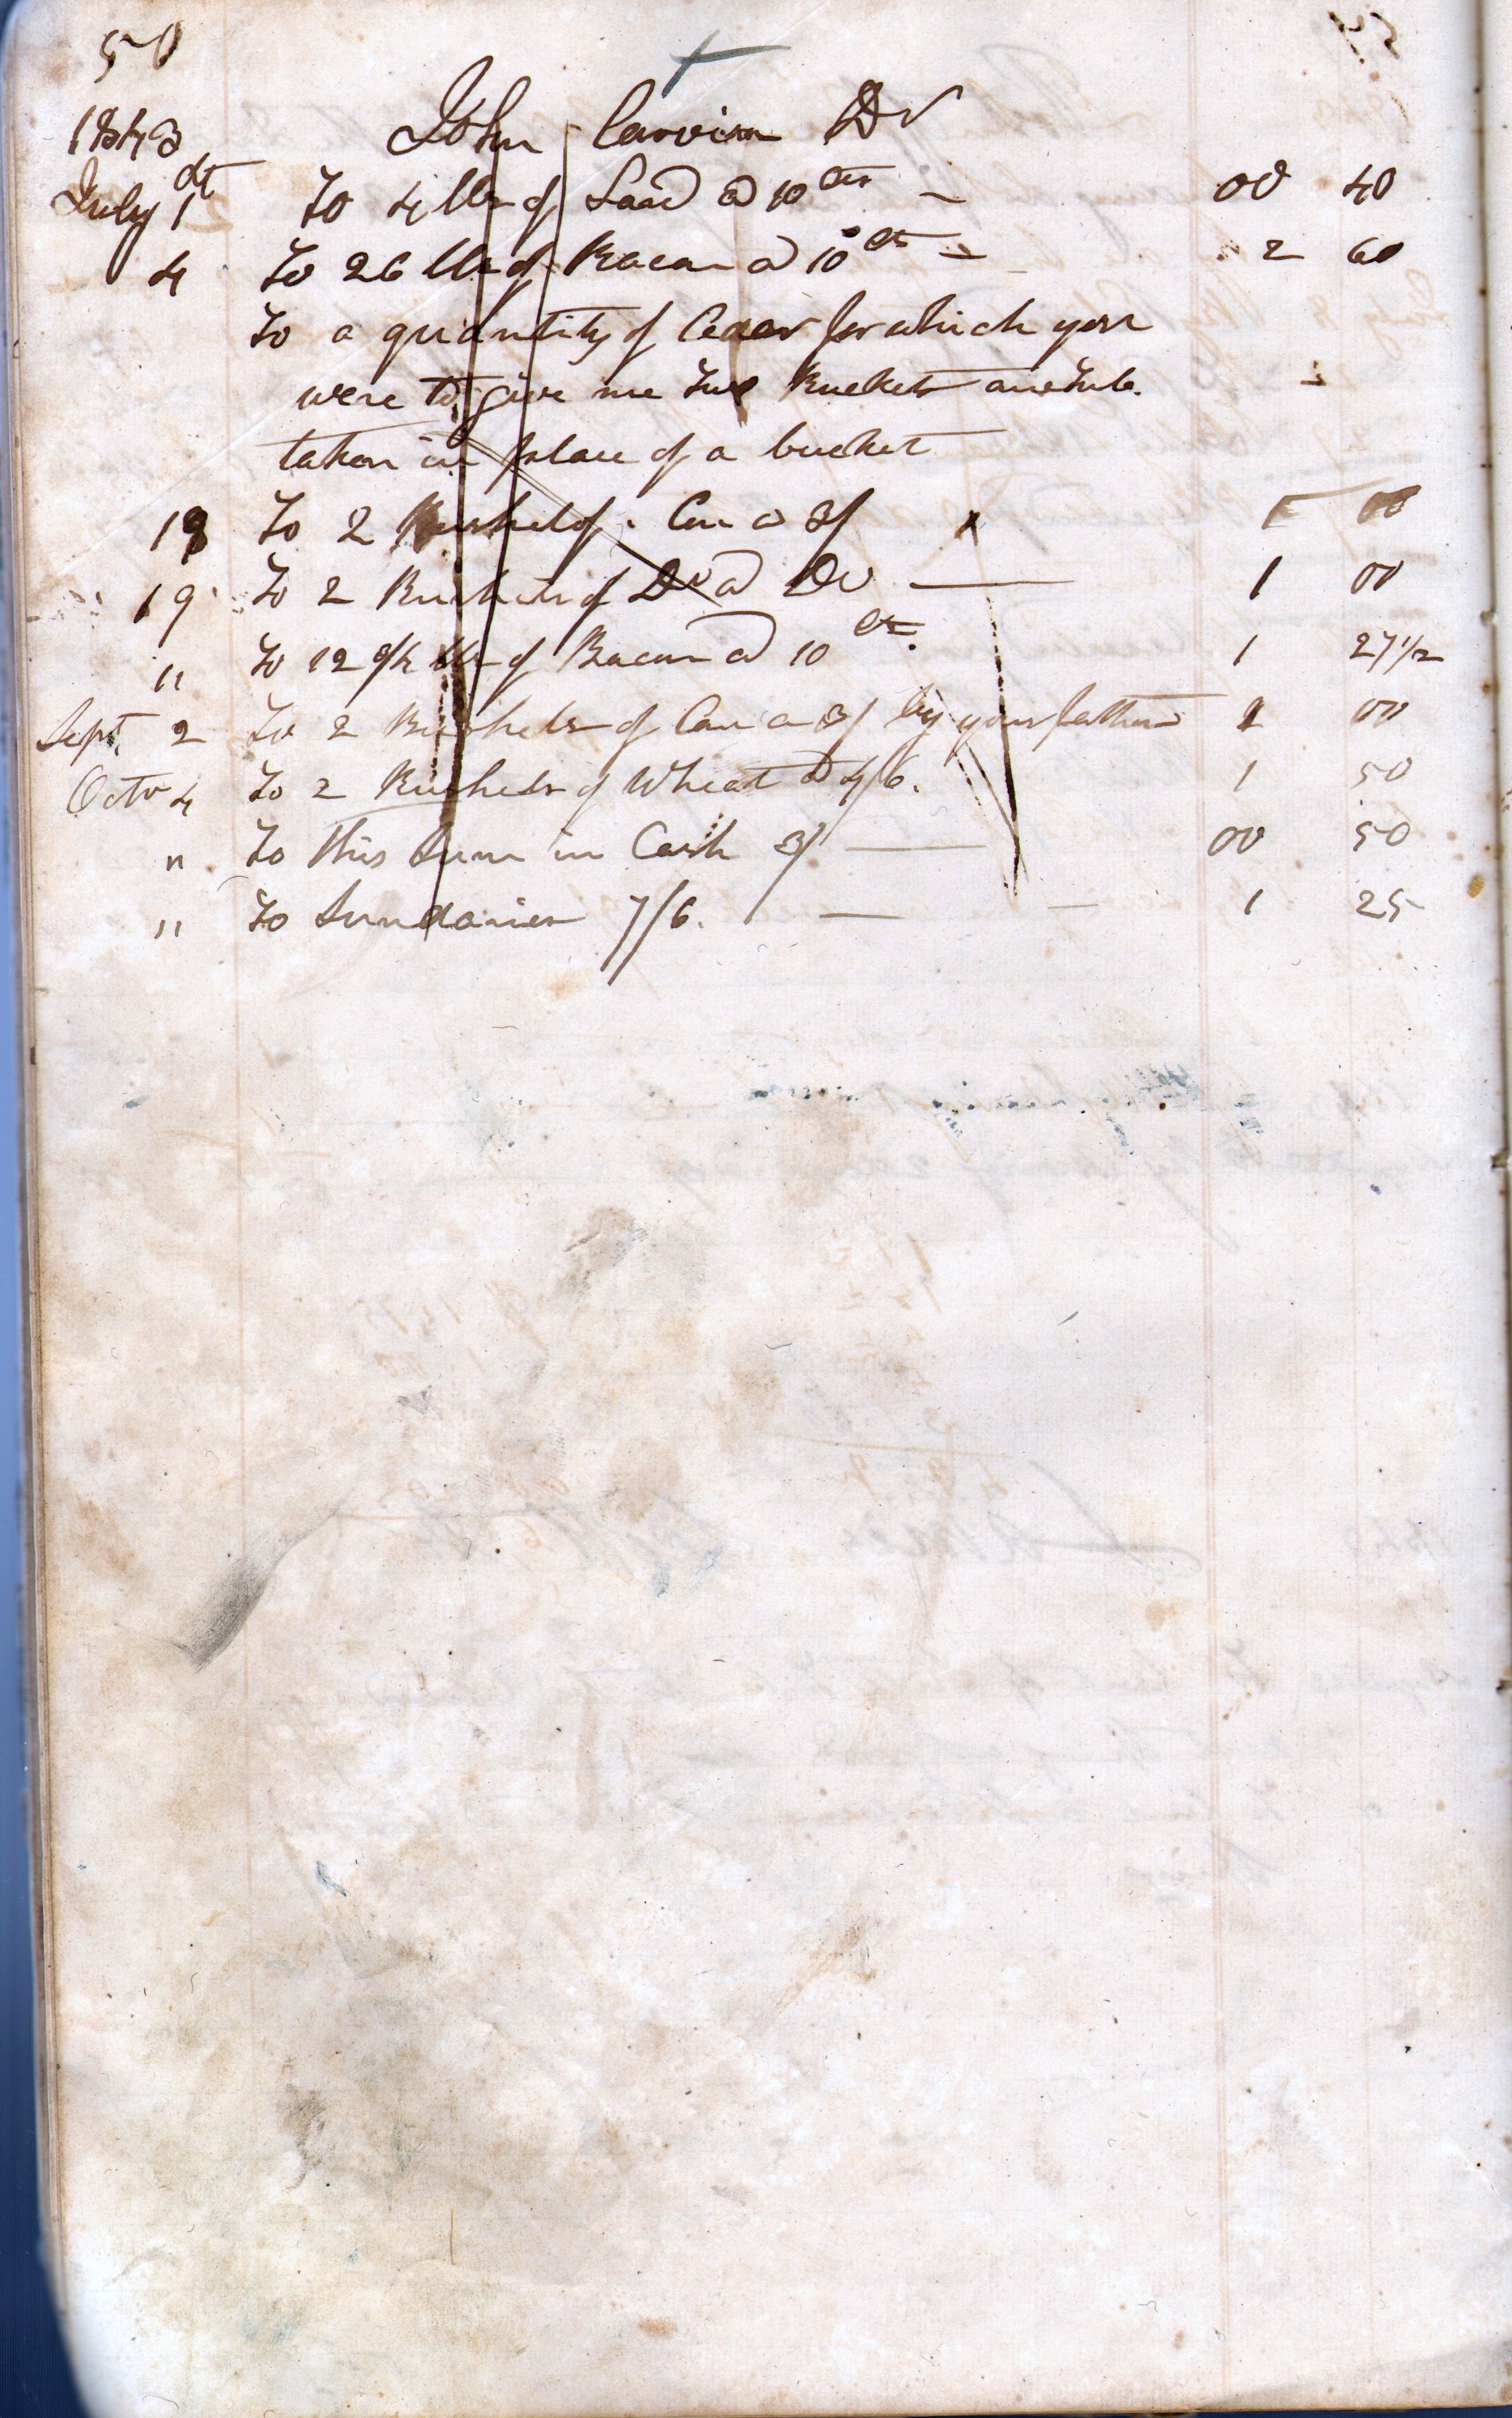 50
1843 John Carvin Dr
July 1st To 4 lbs of Lard @ 10 cts 00 40
4 To 26 lbs of Bacon @ 10 cts 2 60
To a quantity of Cedar for which you
were to give me Two Buckets one Tub
taken in place of a bucket
18 To 2 Bushels of Corn @ 3/ x 00
19 To 2 Bushels of Do @ Do 1 00
" To 12 3/4 lbs of Bacon @ 10 cts. 1 27 1/2
Sept. 2 To 2 Bushels of Corn @ 3/ by your father 1 00
Octr 4 To 2 Bushels of Wheat @ 4/6. 1 50
" To this Sum in Cash 3/ 00 50
" To Sundaries 7/6. 1 25